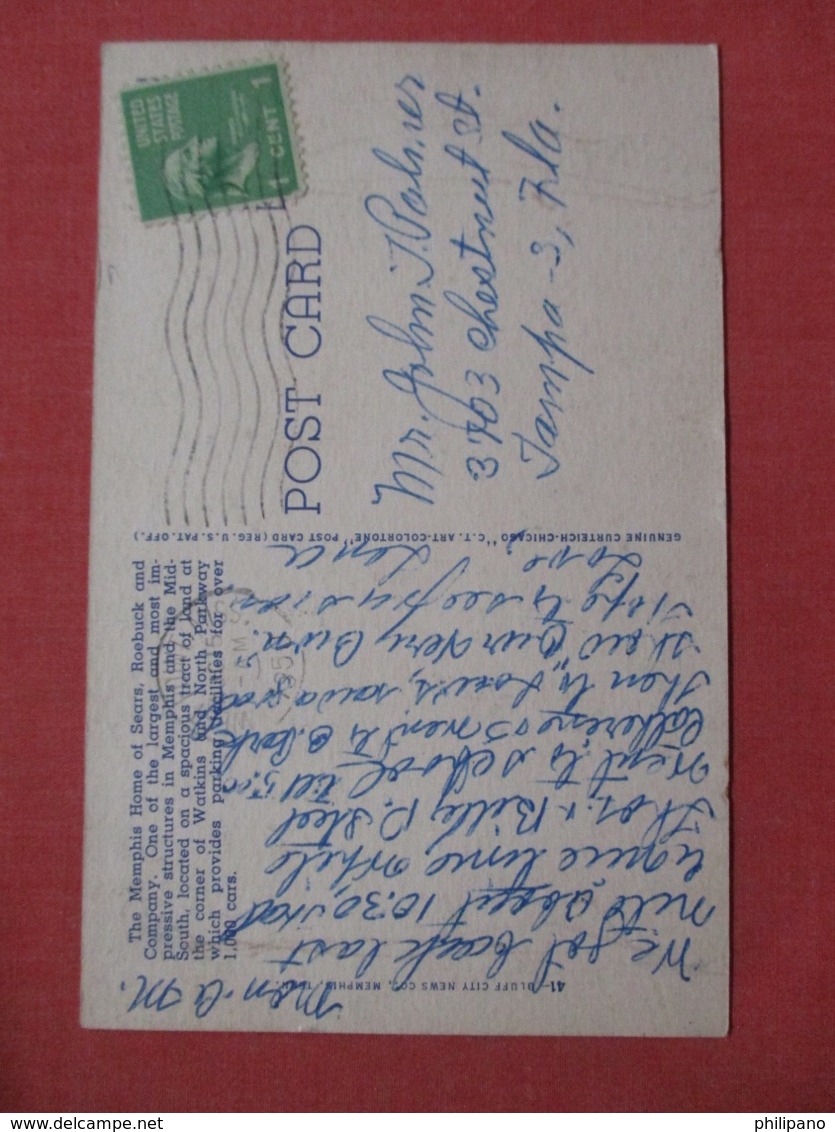 The Memphis Home of Sears, Roebuck and
Company. One of the largest and most im-
pressive structures in Memphis and the Mid-
South, located on a spacious tract of land at
the corner of Watkins and North Parkway
which provides parking facilities for over
1,000 cars.
UNITED
STATES
POSTAGE
1 CENT 1
POST CARD
Mr. John T. Palmer
3703 Chestnut St.
Tampa-3, Fla.
GENUINE CURTEICH-CHICAGO "C.T. ART-COLORTONE" POST CARD (REG. U.S. PAT. OFF.)
41—BLUFF CITY NEWS CO., MEMPHIS, TENN.
Mon. A.M.
We got back last
nite about 10:30, had
a nice time while
Thos. & Billy P.
went to school till 5:00
Catherine & I went to
then to
show "Our Very Own".
Hope to see you soon
Love,
Lena
philipano